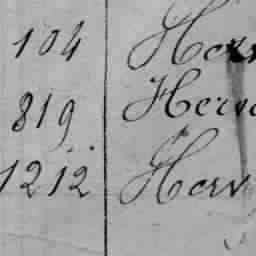 104 Herv
819 Herv
1212 Herv